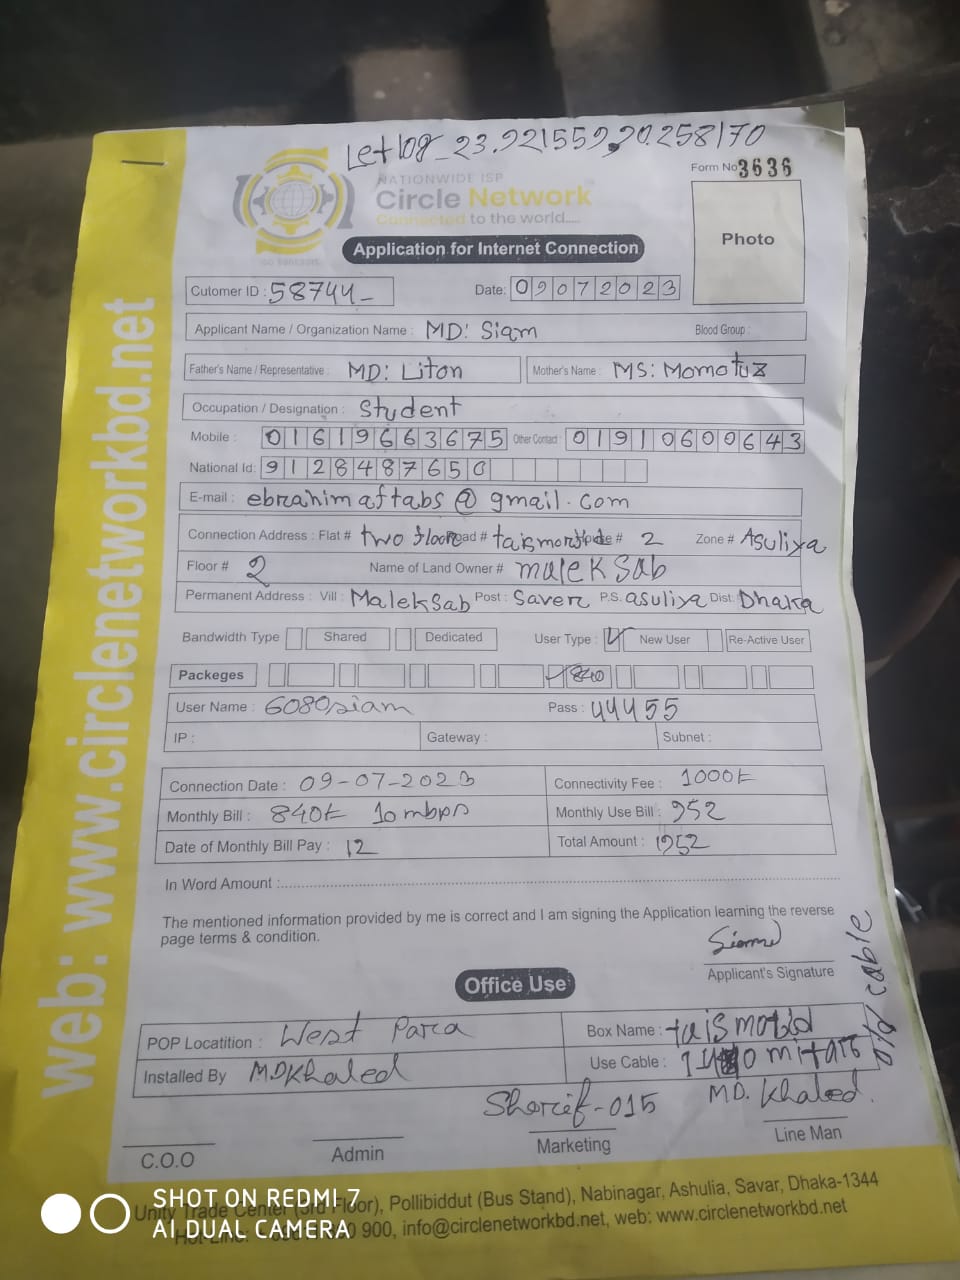 Let log_23.921559,90.258170
Form No 3636
NATIONWIDE ISP
Circle Network
Connected to the world.....
ISO 9001:2015
Photo
Application for Internet Connection
Cutomer ID : 58744_
Date: 09072023
Applicant Name / Organization Name : MD: Siam Blood Group :
Father's Name / Representative : MD: Liton Mother's Name : MS: Momotuz
Occupation / Designation : Student
Mobile : 01619663675 Other Contact : 01910600643
National Id: 9128487650
E-mail : ebrahimaftabs@gmail.com
Connection Address : Flat # two floor Road # House # 2 Zone # Asuliya
Floor # 2 Name of Land Owner # malek Sab
Permanent Address : Vill : Malek Sab Post : Saver P.S. asuliya Dist: Dhaka
Bandwidth Type Shared Dedicated User Type : New User Re-Active User
Packeges 840
User Name : 6080siam Pass : 44455
IP : Gateway : Subnet :
Connection Date : 09-07-2023 Connectivity Fee : 1000t
Monthly Bill : 840t 10 mbps Monthly Use Bill : 952
Date of Monthly Bill Pay : 12 Total Amount : 1952
In Word Amount :
The mentioned information provided by me is correct and I am signing the Application learning the reverse
page terms & condition.
Siam
Applicant's Signature
Office Use
POP Locatition : West Para Box Name :
Installed By MD Khaled Use Cable :
old cable
Sharif-015 MD. Khaled.
C.O.O Admin Marketing Line Man
Unity Trade Center (3rd Floor), Pollibiddut (Bus Stand), Nabinagar, Ashulia, Savar, Dhaka-1344
900, info@circlenetworkbd.net, web: www.circlenetworkbd.net
web: www.circlenetworkbd.net
SHOT ON REDMI 7
AI DUAL CAMERA